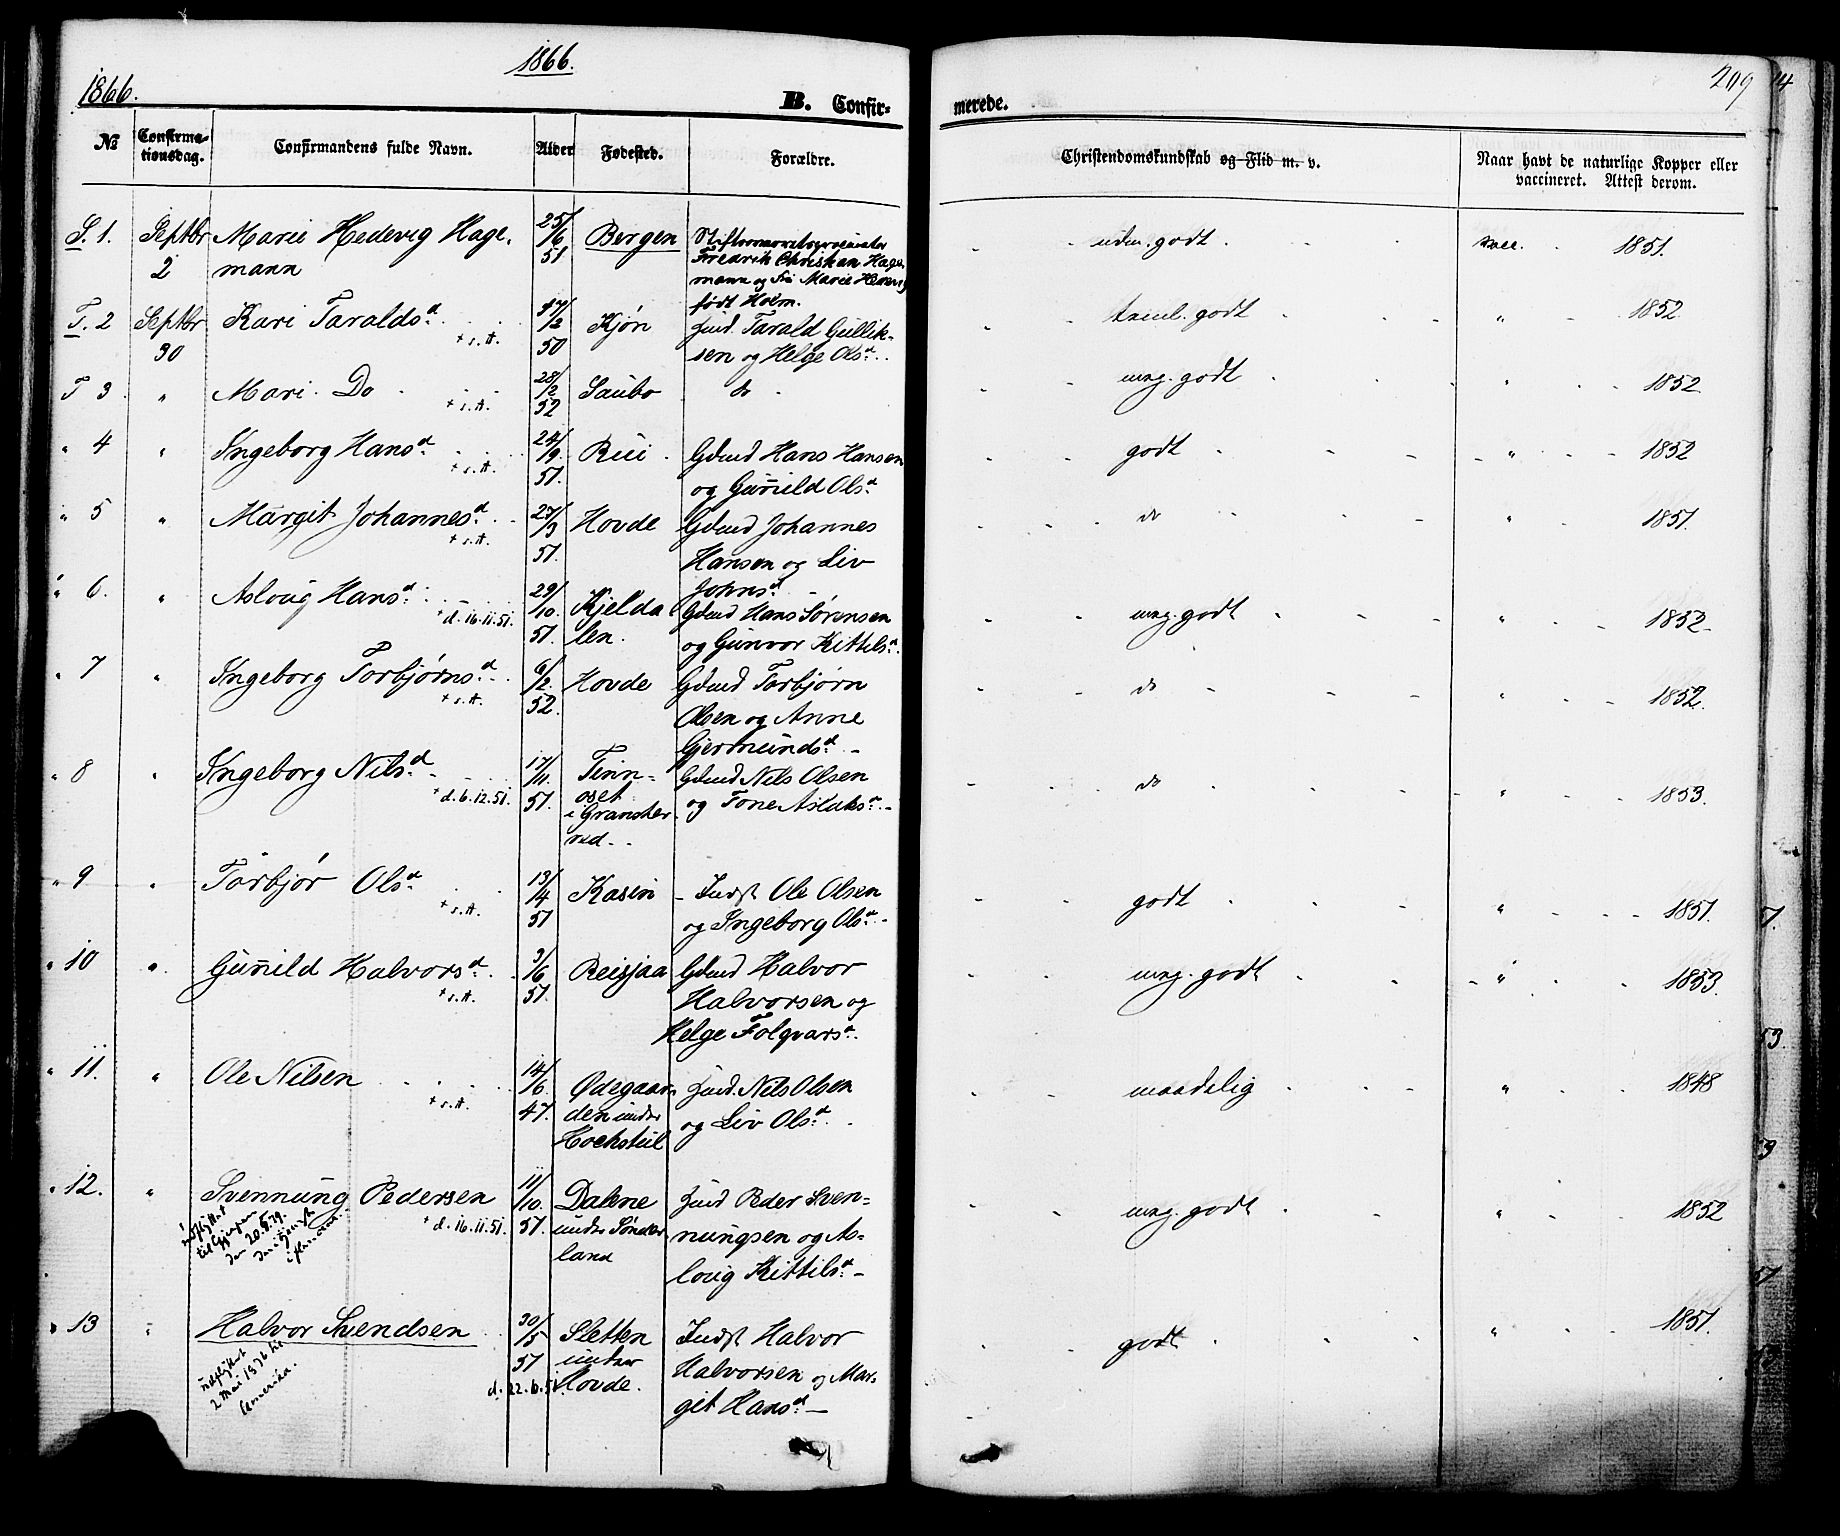 1866.
1866.
209
B. Confir-
merede.
№
Confirma-
tionsdag.
Confirmandens fulde Navn.
Alder
Fødested.
Forældre.
Christendomskundskab og Flid m. v.
Naar havt de naturlige Kopper eller
vaccineret. Attest derom.
S. 1. Septbr Marie Hedevig Hage- 25/ Bergen
2 mann 6
51
Fredrik Christian Hage-
mann og Fru Marie
født Holm.
udm. godt vacc. 1851.
T. 2 Septbr Kari Taralds d. 17/ Kjøn Tarald Gullik-
30 50 sen og Helge Ols d.
godt " 1852.
T 3 " Mari Do 28/2 Saubo do
52
meg. godt " 1852
" 4 " Ingeborg Hans d. 24/9 Rui Gdmd Hans Hansen
51. og Guñild Ols d.
godt " 1852
" 5 " Margit Johannes d. 27/3 Hovde Gdmd Johannes
51. Hansen og Liv
Johns d.
do " 1851.
" 6. " Asloug Hans d. 29/10. Kjelda
d. 16.11.51. 51. len. Gdmd Hans Sørensen
og Gunvor Kittils d.
meg. godt " 1852
" 7 " Ingeborg Torbjørns d. 6/2. Hovde Gdmd Torbjørn
52. Olsen og Anne
Gjermunds d.
do " 1852.
" 8 " Ingeborg Nils d. 17/11. Tinn-
d. 6.12.51. 51. oset
i Gransher
red.
Gdmd Nils Olsen
og Tone Aslaks d.
do " 1853.
" 9 " Torbjør Ols d. 13/4 Kasin Indst Ole Olsen
51 og Ingeborg Ols d.
godt " 1851.
" 10 " Guñild Halvors d. 3/6 Reisjaa Gdmd Halvor
51. Halvorsen og
Helge Folqvars d.
meg. godt " 1853.
" 11. " Ole Nilsen 14/6. Ødegaar-
47. den under
Nils Olsen
og Liv Ols d.
maadelig " 1848
" 12. " Svennung Pedersen 11/10. Dalene
d. 16.11.51. 51. under Sønder
land
Peder Sven-
nungsen og As-
loug Kittils d.
meg. godt " 1852
" 13 " Halvor Svendsen 30/5 Sletten
51 under
Hovde.
Indst Halvor
Halvorsen og Mar-
git Hans d.
godt " 1851.
udflyttet
2 Mai 1876 til
Amerika.